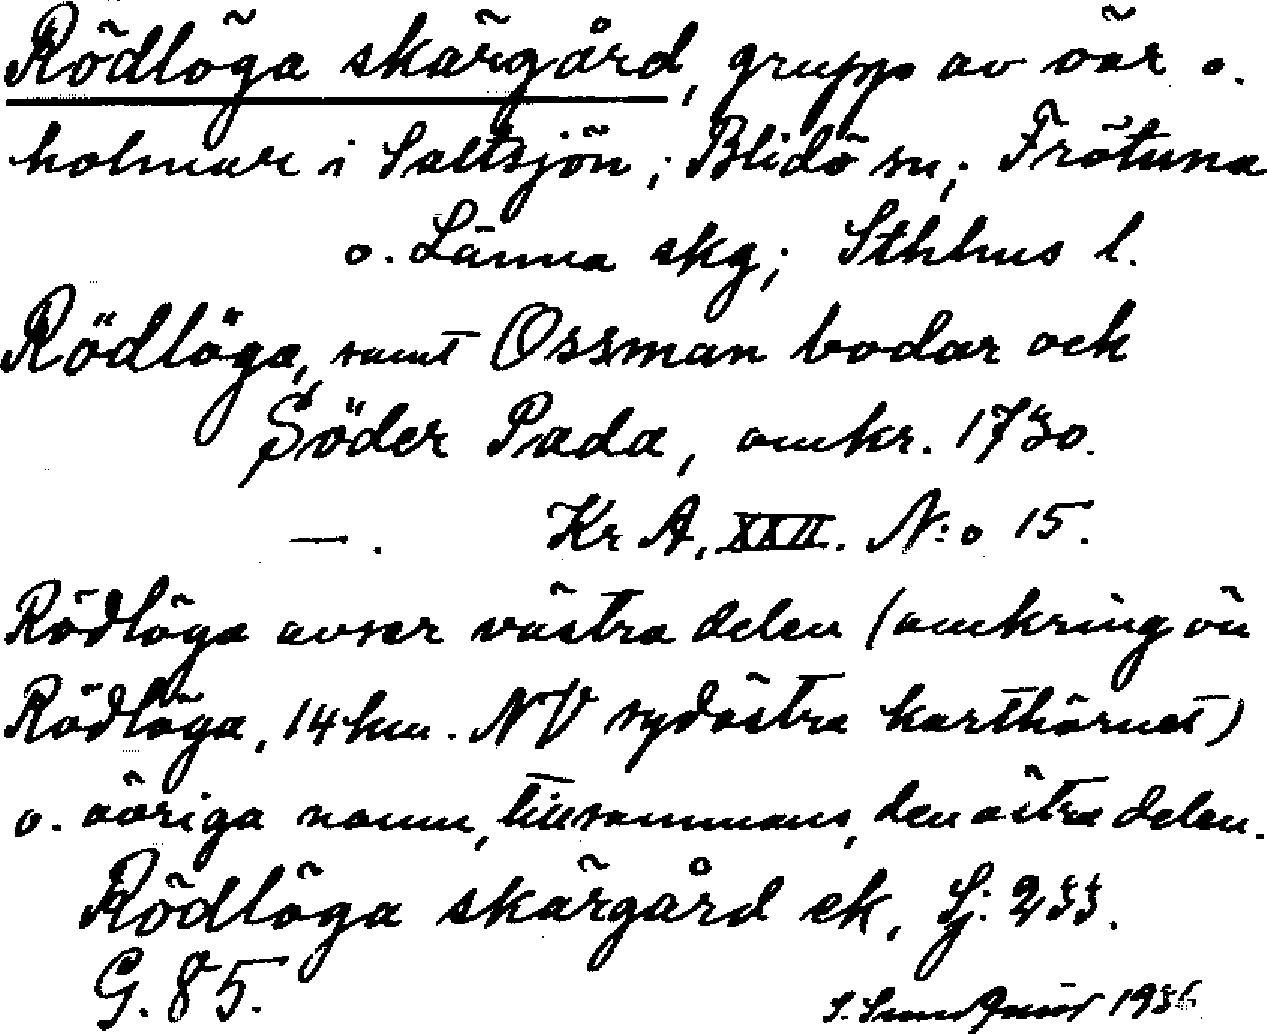 Rödlöga skärgård, grupp av öar o.
holmar i Saltsjön; Blidö sn; Frötuna
o. Länna skg; Sthlms l.
Rödlöga, samt Ossman bodar och
Söder Pada, omkr. 1730.
—. Kr A, XXII. N:o 15.
Rödlöga avser västra delen (omkring ön
Rödlöga, 14 km. NV sydöstra karthörnet)
o. övriga namn, tillsammans, den östra delen.
Rödlöga skärgård ek, Sj: 233.
G. 85.
S. 1936